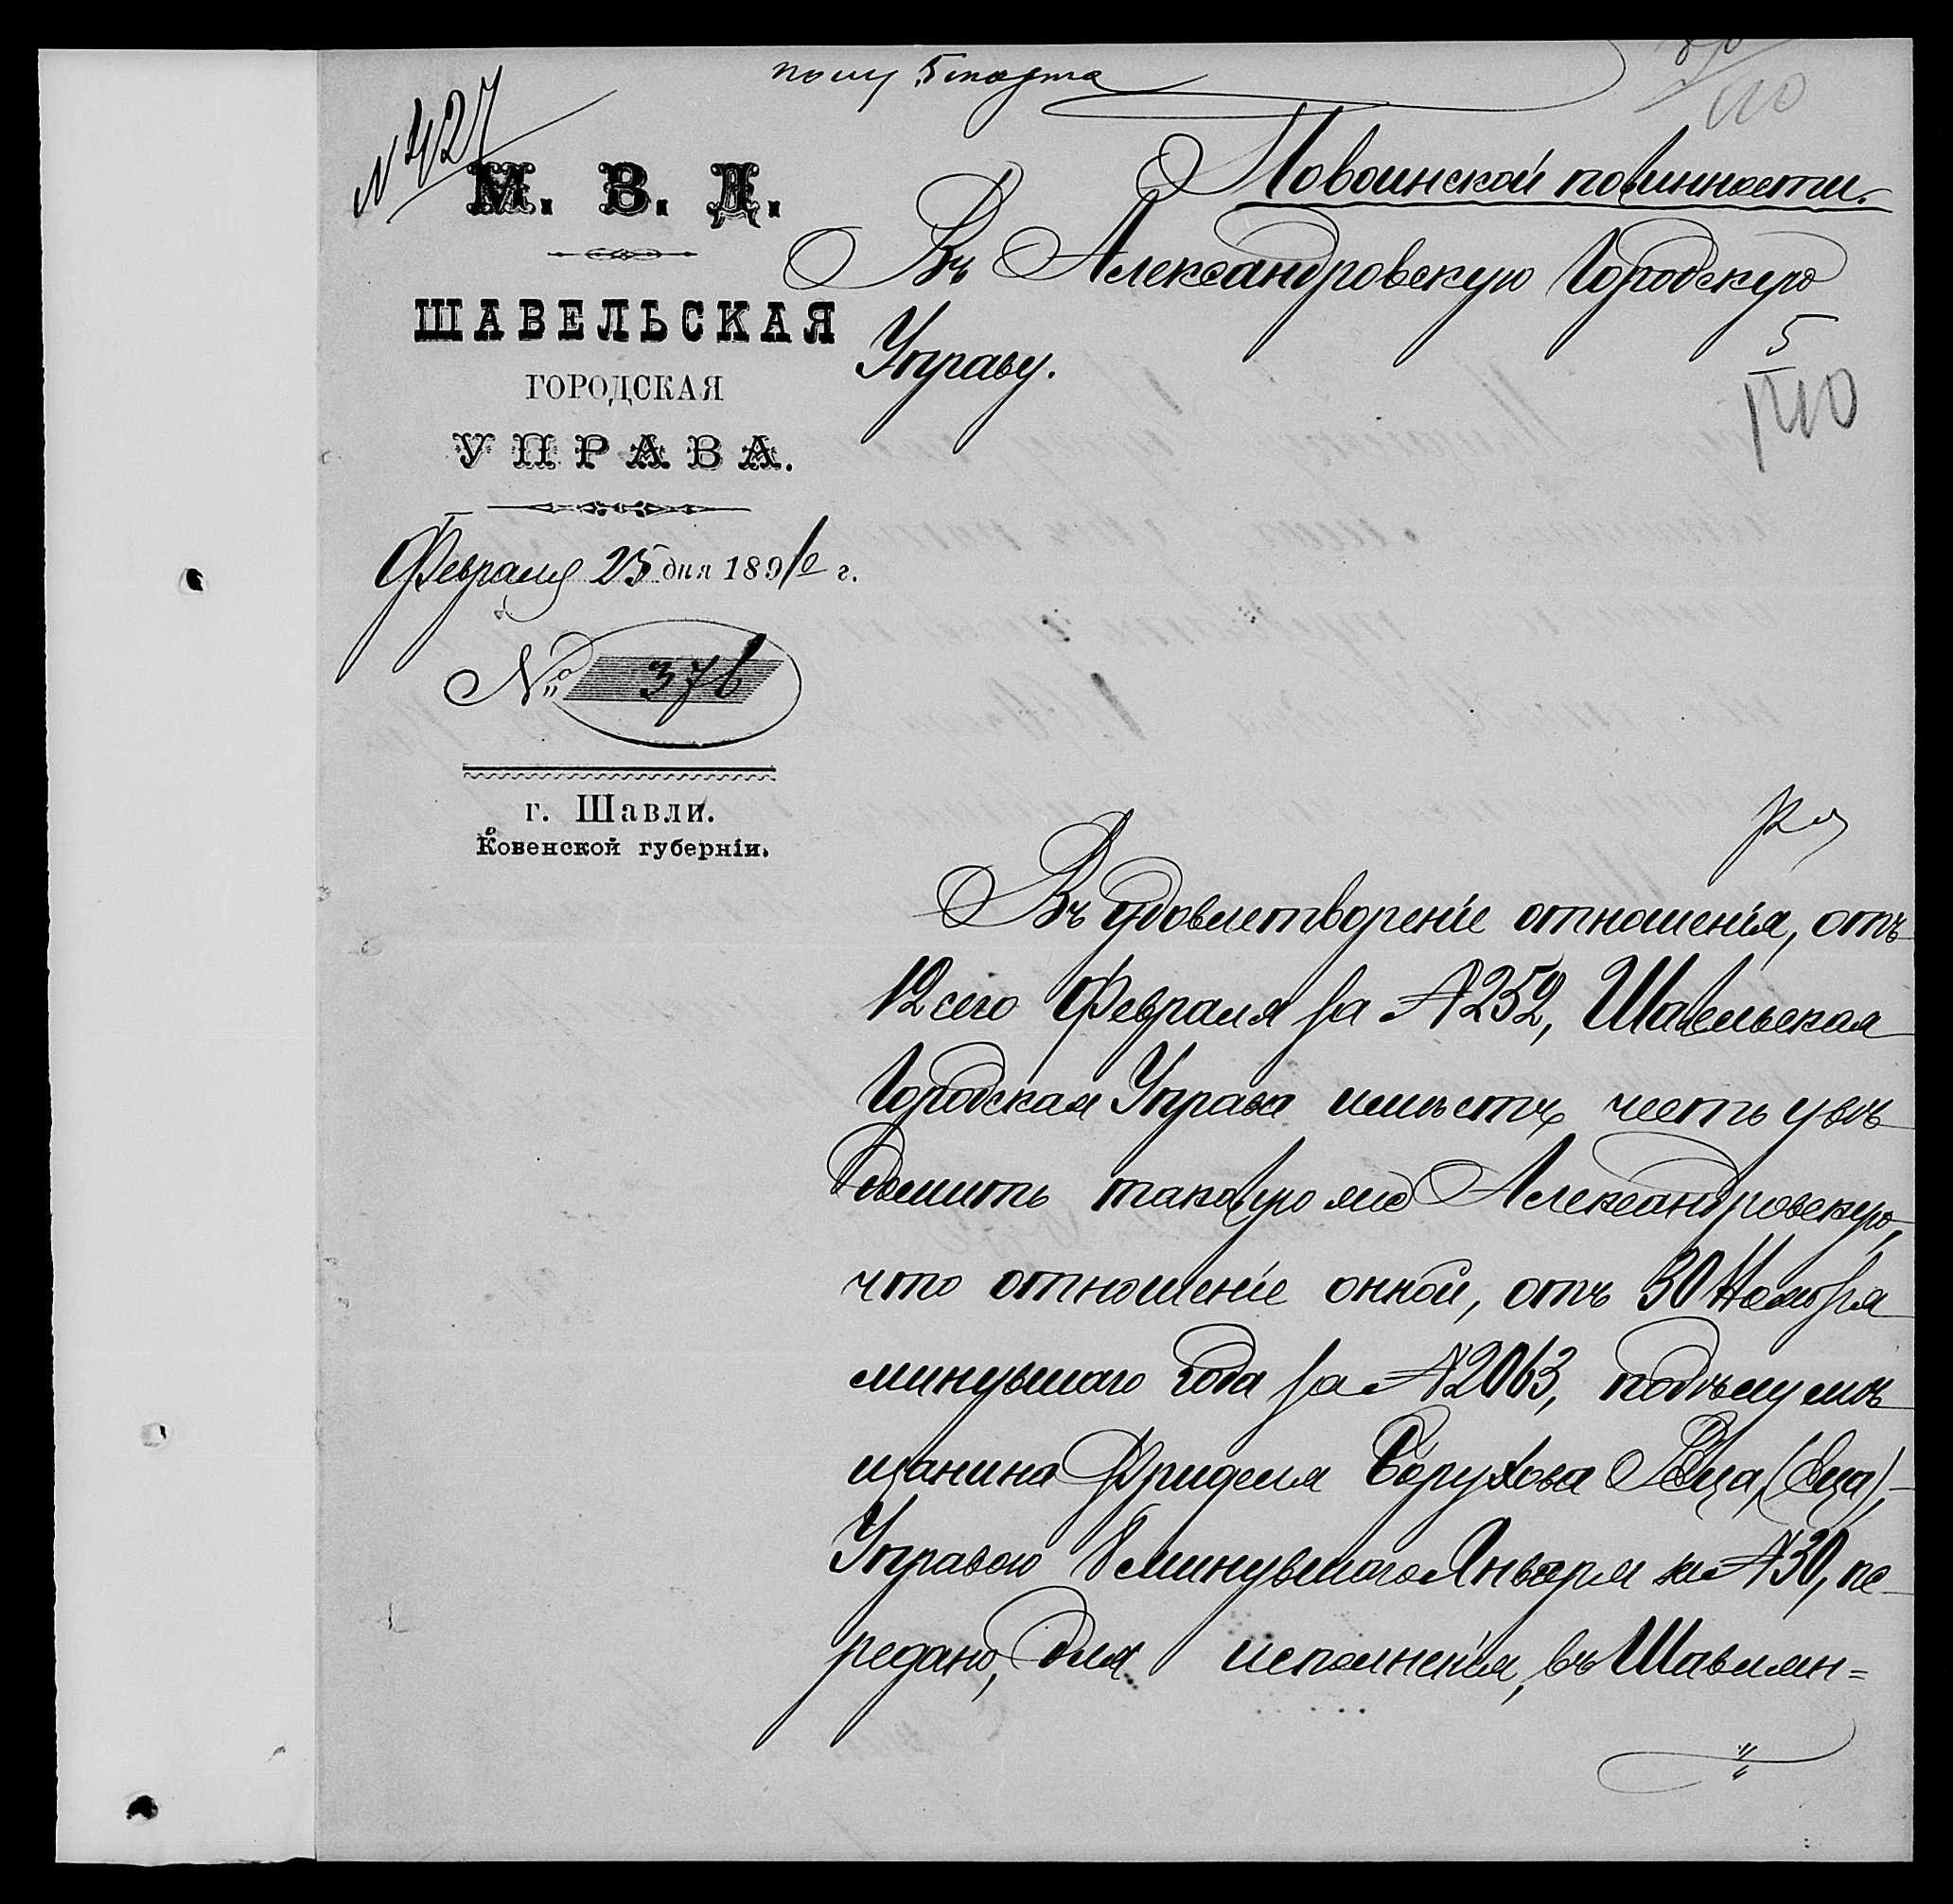 пол. 5 марта
№ 427
М. В. Д.
ШАВЕЛЬСКАЯ
ГОРОДСКАЯ
УПРАВА.
Февраля 25 дня 1891 г.
№ 376
г. Шавли.
Ковенской губерніи.
По воинской повинности.
Въ Александровскую Городскую
Управу.
5
Въ удовлетвореніе отношенія, отъ
12 сего Февраля за № 252, Шавельская
Городская Управа имѣетъ честь увѣ
домить таковую же Александровскую,
что отношеніе онной, отъ 30 Ноября
минувшаго года за № 2063, по дѣлу мѣ
щанина Фриделя Борухова Эца, (Еца),
Управою 8 минувшаго Января за № 30, пе
редано, для исполненія, въ Шавлян=